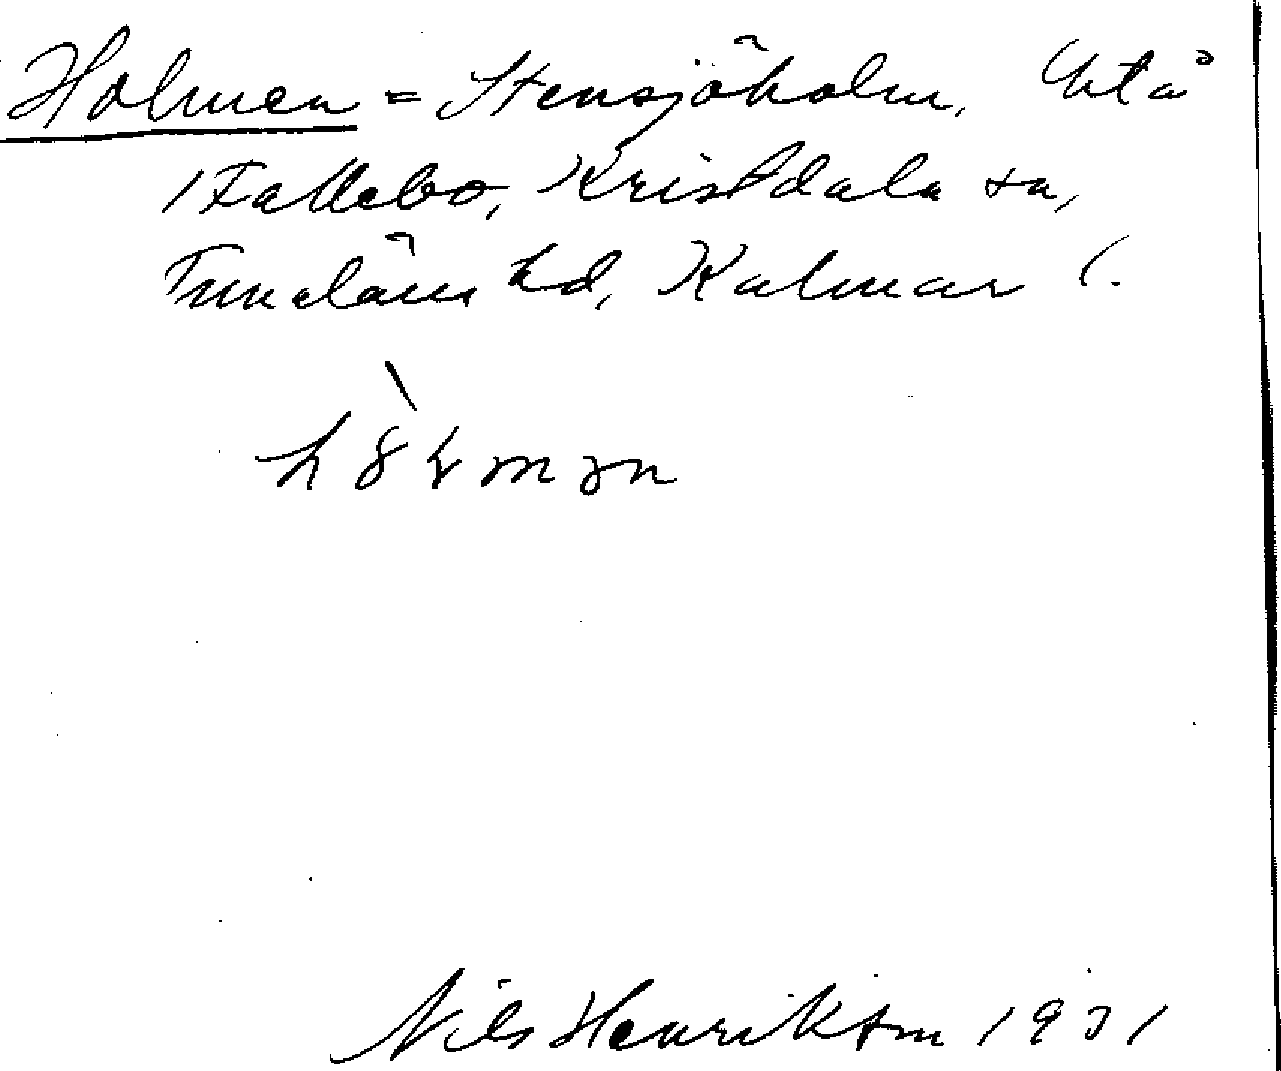 Holmen = Stensjöholm,
1 Fallebo, Kristdala sn,
Tunaläns hd, Kalmar l.
Nils Henrikson 1931